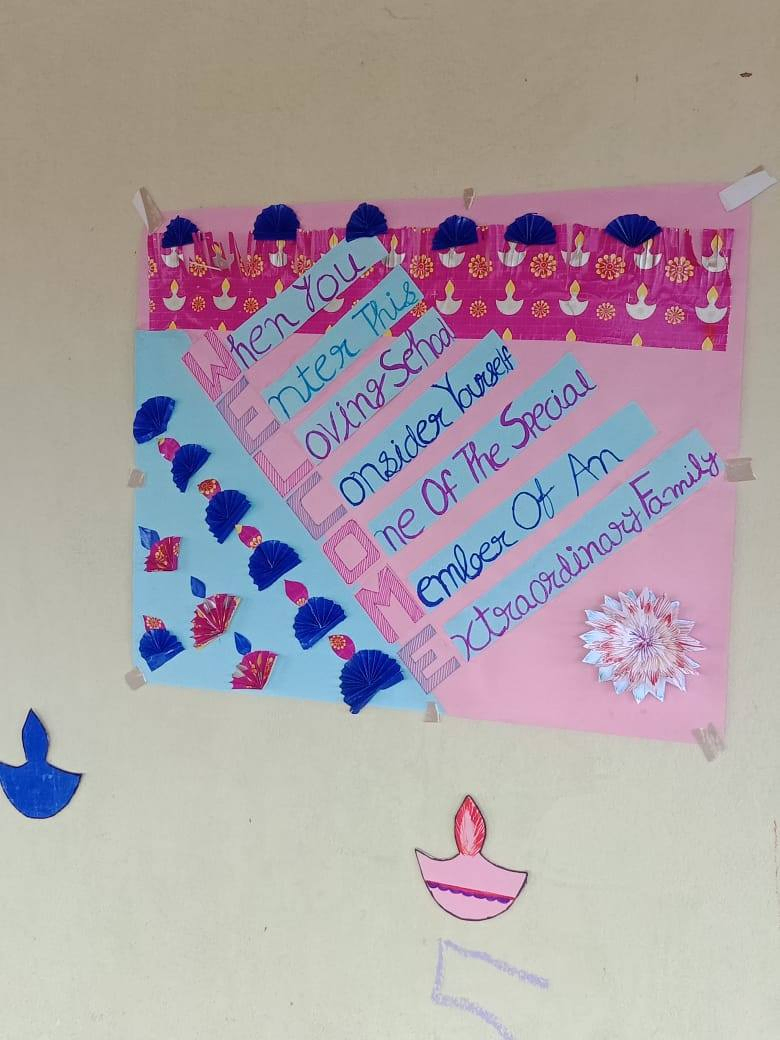 When You
Enter This
Loving School
Consider Yourself
One Of The Special
Member Of An
Extraordinary Family